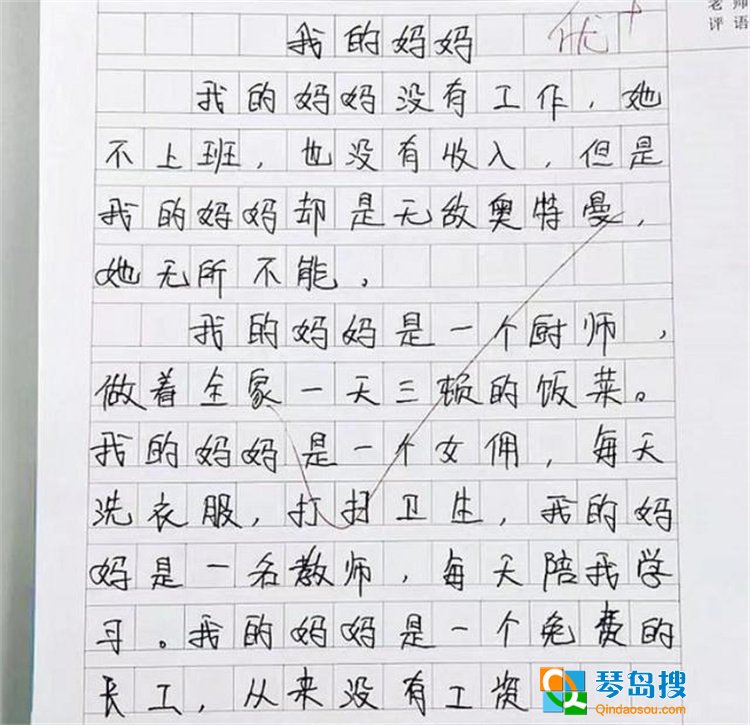 老师
评语
我的妈妈
优+
我的妈妈没有工作，她
不上班，也没有收入，但是
我的妈妈却是无敌奥特曼，
她无所不能，
我的妈妈是一个厨师，
做着全家一天三顿的饭菜。
我的妈妈是一个女佣，每天
洗衣服，打扫卫生，我的妈
妈是一名教师，每天陪我学
习。我的妈妈是一个免费的
长工，从来没有工资
琴岛搜
Qindaosou.com